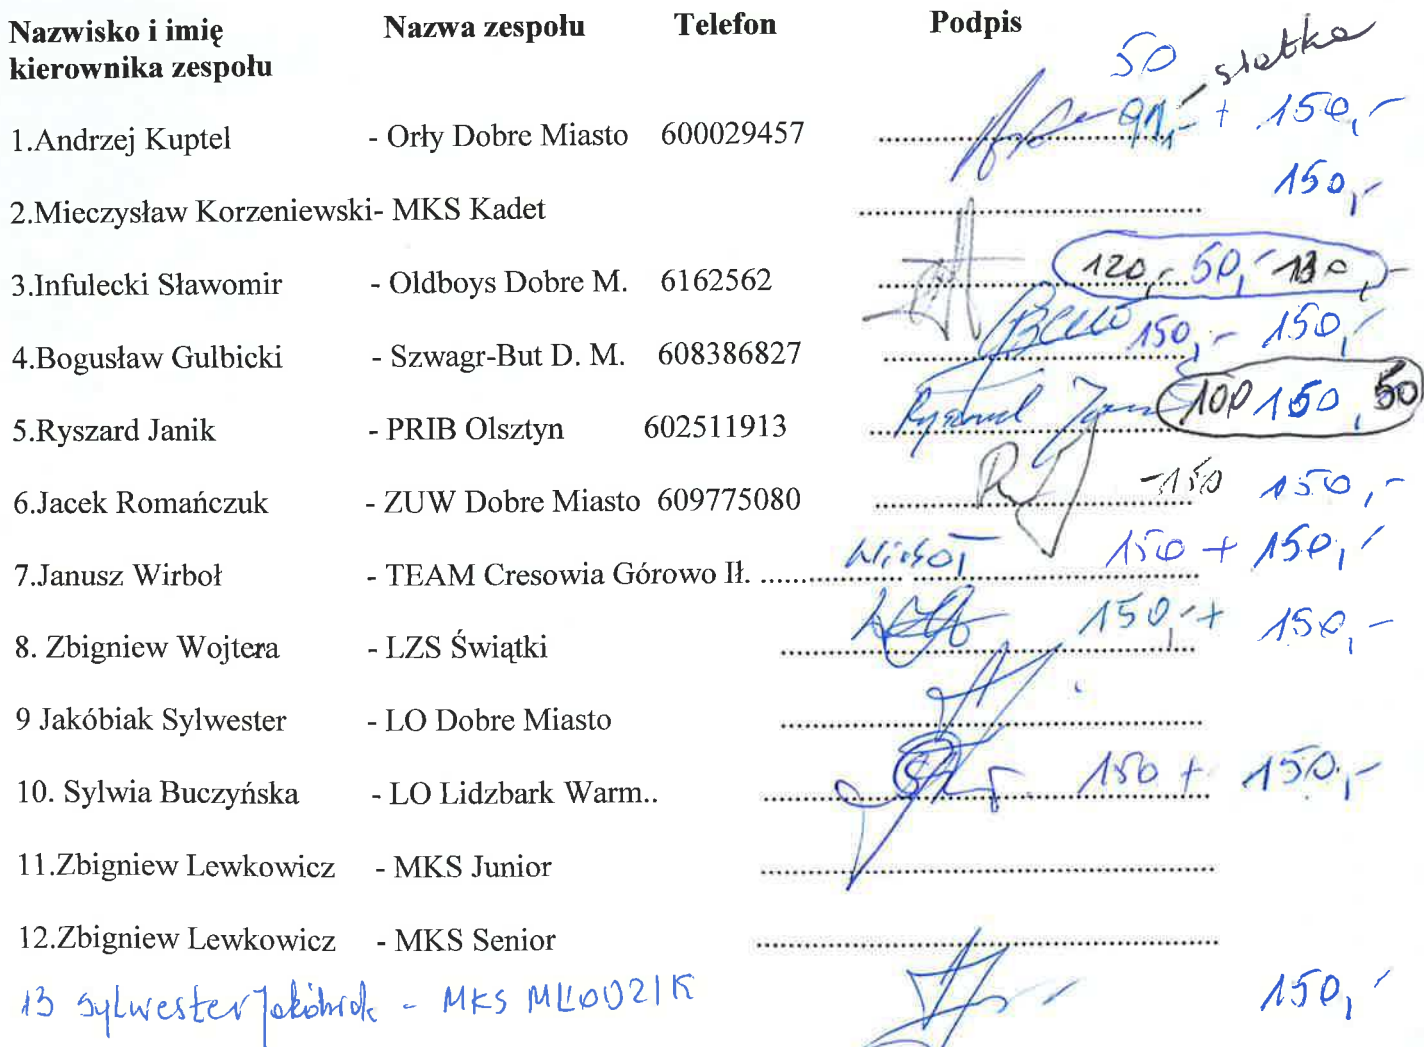 Nazwisko i imię Nazwa zespołu Telefon Podpis
kierownika zespołu
50 siatka
1.Andrzej Kuptel - Orły Dobre Miasto 600029457 ........ 91,- + 150,-
2.Mieczysław Korzeniewski- MKS Kadet ........ 150,-
3.Infulecki Sławomir - Oldboys Dobre M. 6162562 ........ 120,- 50,- 130,-
4.Bogusław Gulbicki - Szwagr-But D. M. 608386827 ........ 150,- 150,-
5.Ryszard Janik - PRIB Olsztyn 602511913 ........ Ryszard Janik 100 150, 50
6.Jacek Romańczuk - ZUW Dobre Miasto 609775080 ........ -150 150,-
7.Janusz Wirboł - TEAM Cresowia Górowo Ił. ........ Wirboł 150 + 150,-
8. Zbigniew Wojtera - LZS Świątki ........ 150,- + 150,-
9 Jakóbiak Sylwester - LO Dobre Miasto ........
10. Sylwia Buczyńska - LO Lidzbark Warm.. ........ 150 + 150,-
11.Zbigniew Lewkowicz - MKS Junior ........
12.Zbigniew Lewkowicz - MKS Senior ........
13 Sylwester Jakóbiak - MKS MŁODZIK 150,-